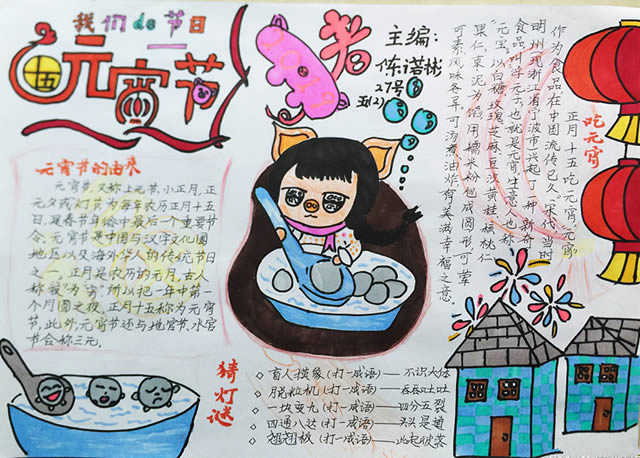 我们de节日
十五
元宵节
2019
猪
主编:
陈诺彬
27号
五(2)
元宵节的由来
元宵节,又称上元节,小正月,正
元夕或灯节为每年农历正月十五
日,是春节年俗中最后一个重要节
令,元宵节是中国与汉字文化圈
地区以及海外华人的传统节日
之一,正月是农历的元月,古人
称夜"为宵"所以把一年中第一
个月圆之夜,正月十五称为元宵
节,此外,元宵节还与地官节,水官
节合称三元。
吃元宵
正月十五吃"元宵","元宵"
作为食品在中国流传已久,宋代,当时
明州现浙江省宁波市兴起了一种新奇
食品叫浮元子,也就是元宵生意人也称
"元宝",以白糖,玫瑰芝麻豆沙黄桂核桃仁
果仁枣泥为馅用糯米粉包成圆形,可荤
可素,风味各异,可汤煮油炸,有美满幸福之意。
猜灯谜
盲人摸象(打一成语)——不识大体
脱粒机(打一成语)——吞吞吐吐
一块变九(打一成语)——四分五裂
四通八达(打一成语)——头头是道
翘翘板(打一成语)——此起彼落